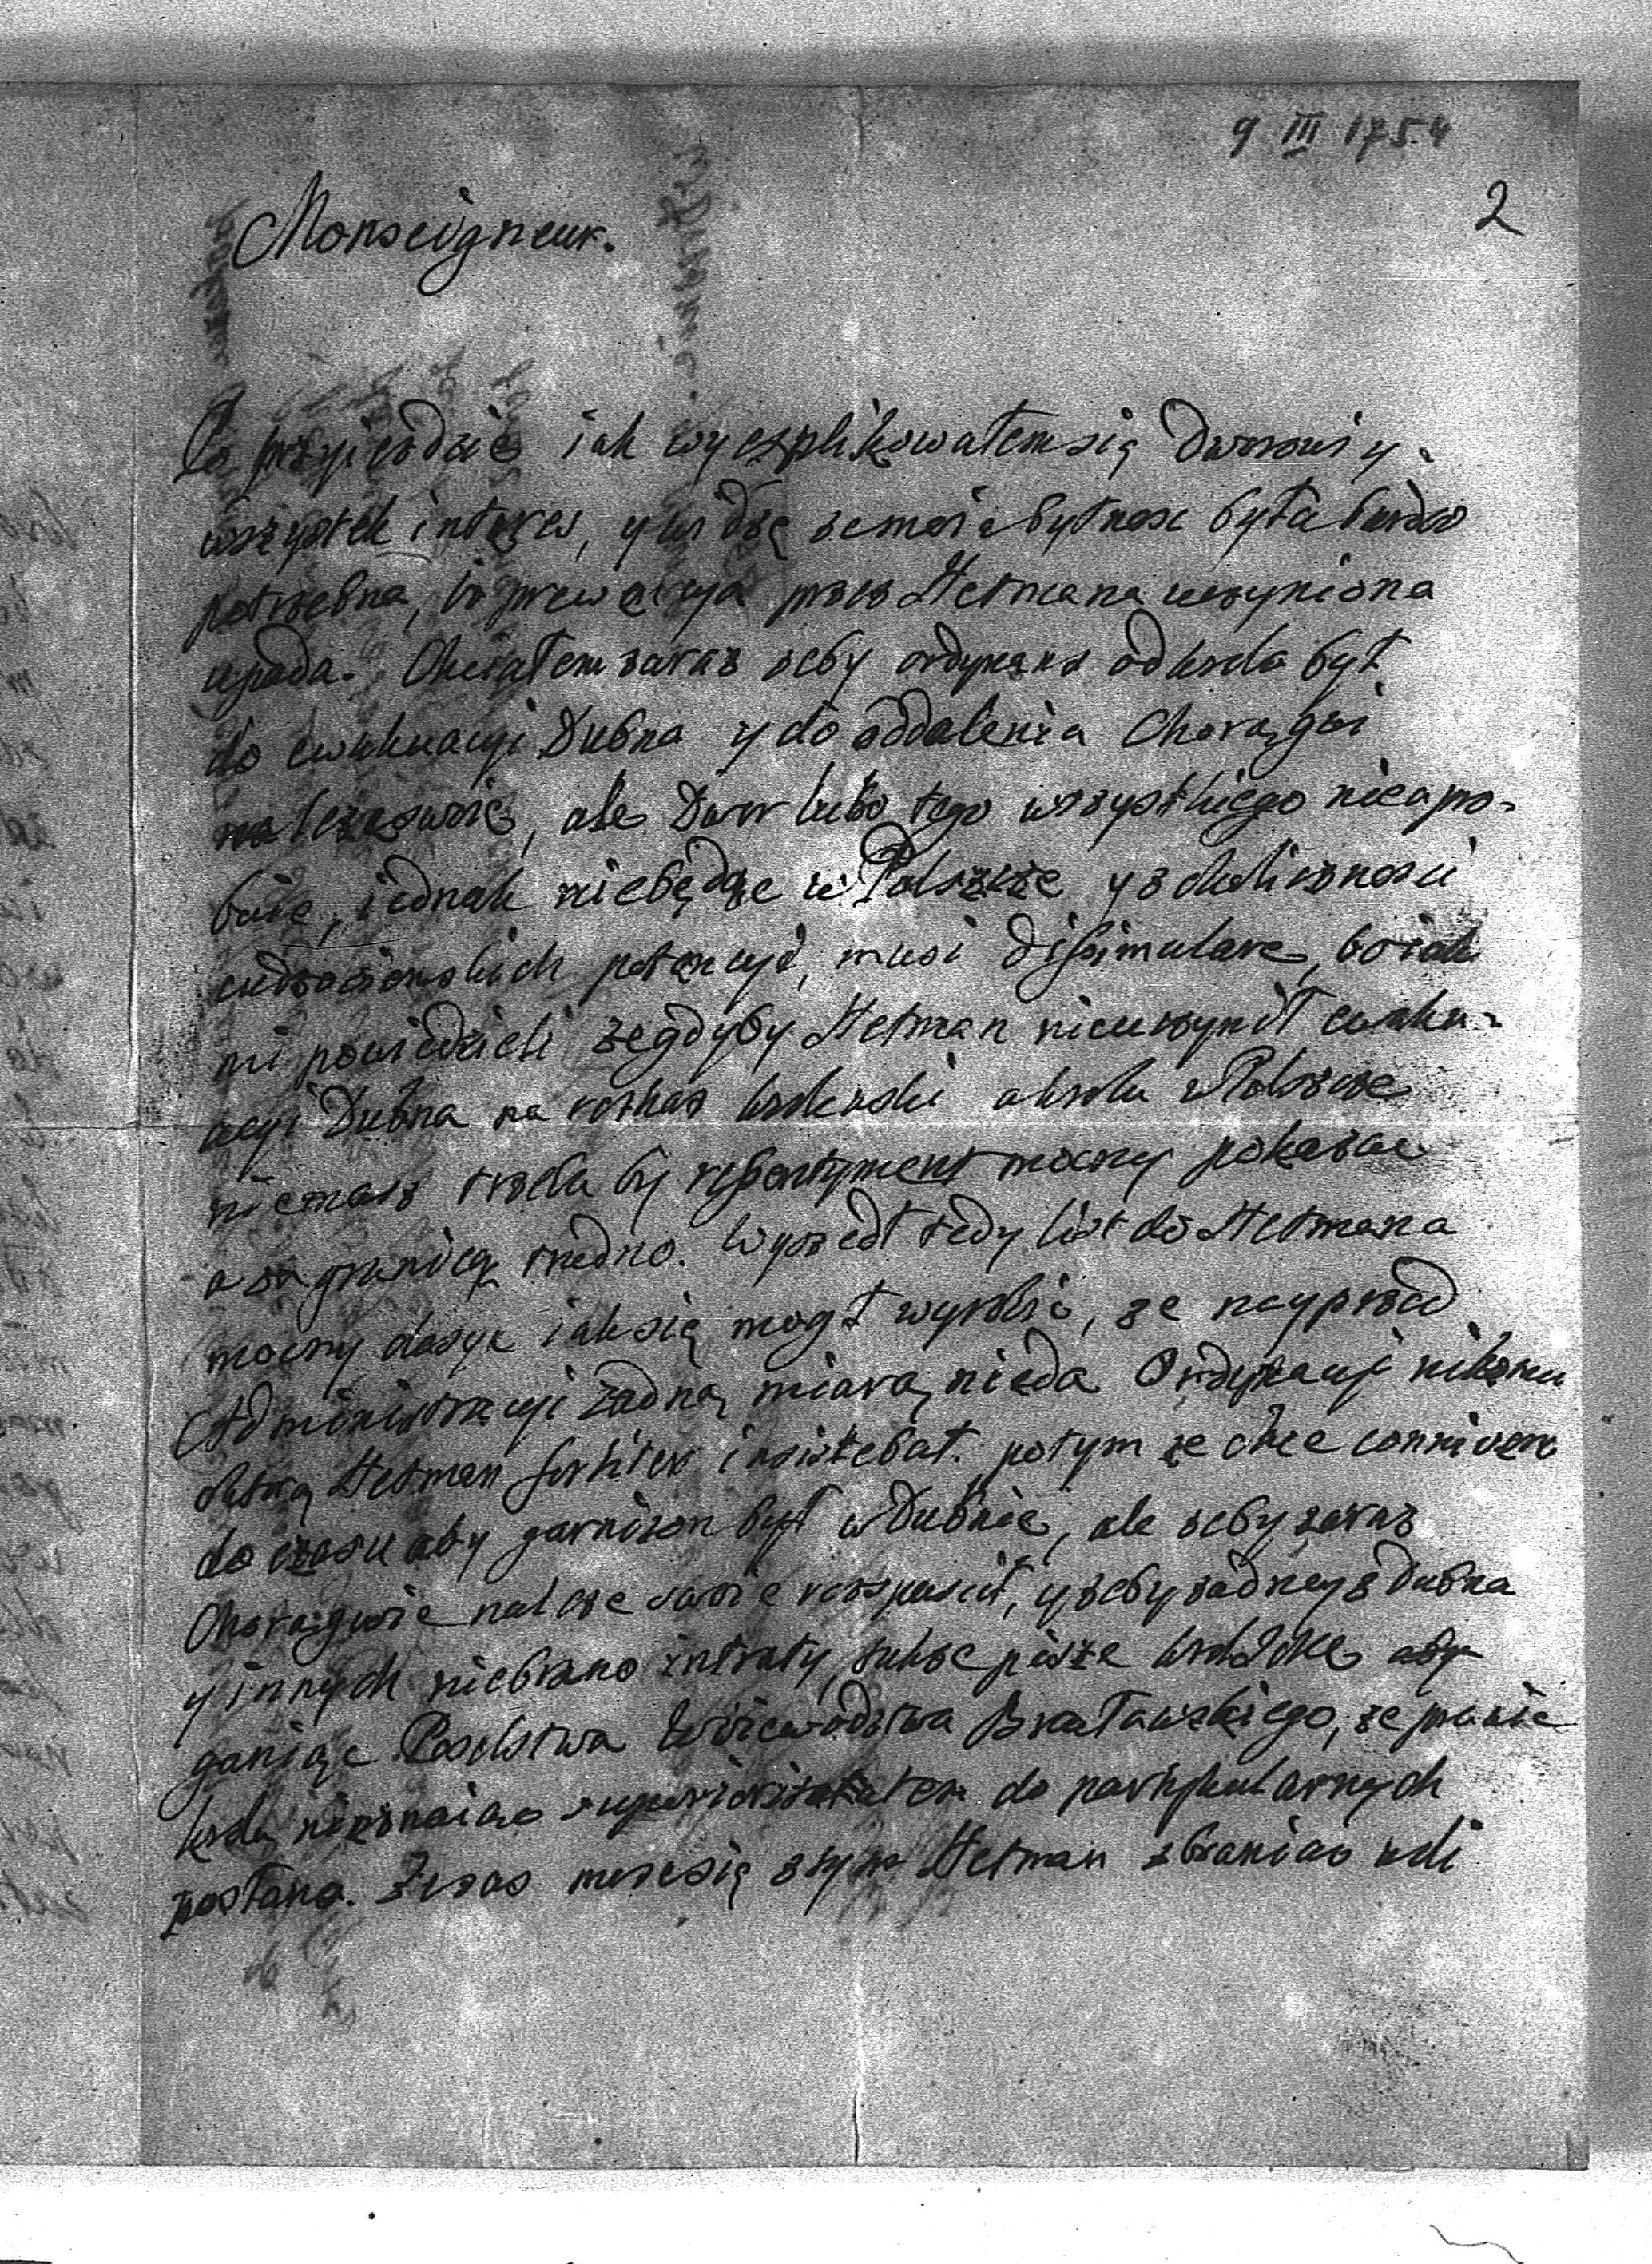 9 III 1754
2
Monseigneur.
Po przyieździe iak wyexplikowałem się Dworowi y
wszystek interes, y widzę że moia bytnosc była bardzo
potrzebna, bo prewencya przez Hetmana uczyniona
upada. Chciałem zaraz żeby ordynans od krola był
do ewakuacyi Dubna y do oddalenia Chorągwi
nalezaowie, ale Dwor lubo tego wszystkiego nieapro-
buie, iednak niebędąc w Polszcze y z okolicznosci
cudzoziemskich potencyi, musi dissimulare, bo iak
mi powiedzieli że gdyby Hetman nieuczynił ewaku-
acyi Dubna na roskaz krolewski a krola w Polszcze
niemasz trzeba by ressentyment mocny pokazac
a za granicą trudno. Wyszedł tedy list do Hetmana
mocny dosyc iak się mogł wyrobic, że nayprzod
Administracyi żadną miarą nieda Ordynacyi nikomu
o ktorą Hetman fortiter insistebat. potym że chce connivere
do czasu aby garnizon był w Dubnie, ale żeby zaraz
Chorągwie rozpuscił, y żeby żadney z Dubna
y innych niebrano intraty, także pisze krol
ganiąc Poselstwa Woiewodztwa Bracławskiego, że prawie
krola nieznaiąc superioritatem do partykularnych
posłano. Teraz może się z tym Hetman zbraniac